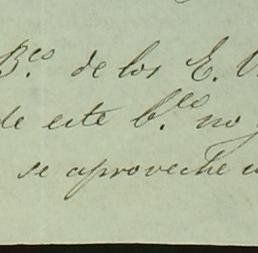 B.co de los E.
de este b.co no
se aproveche